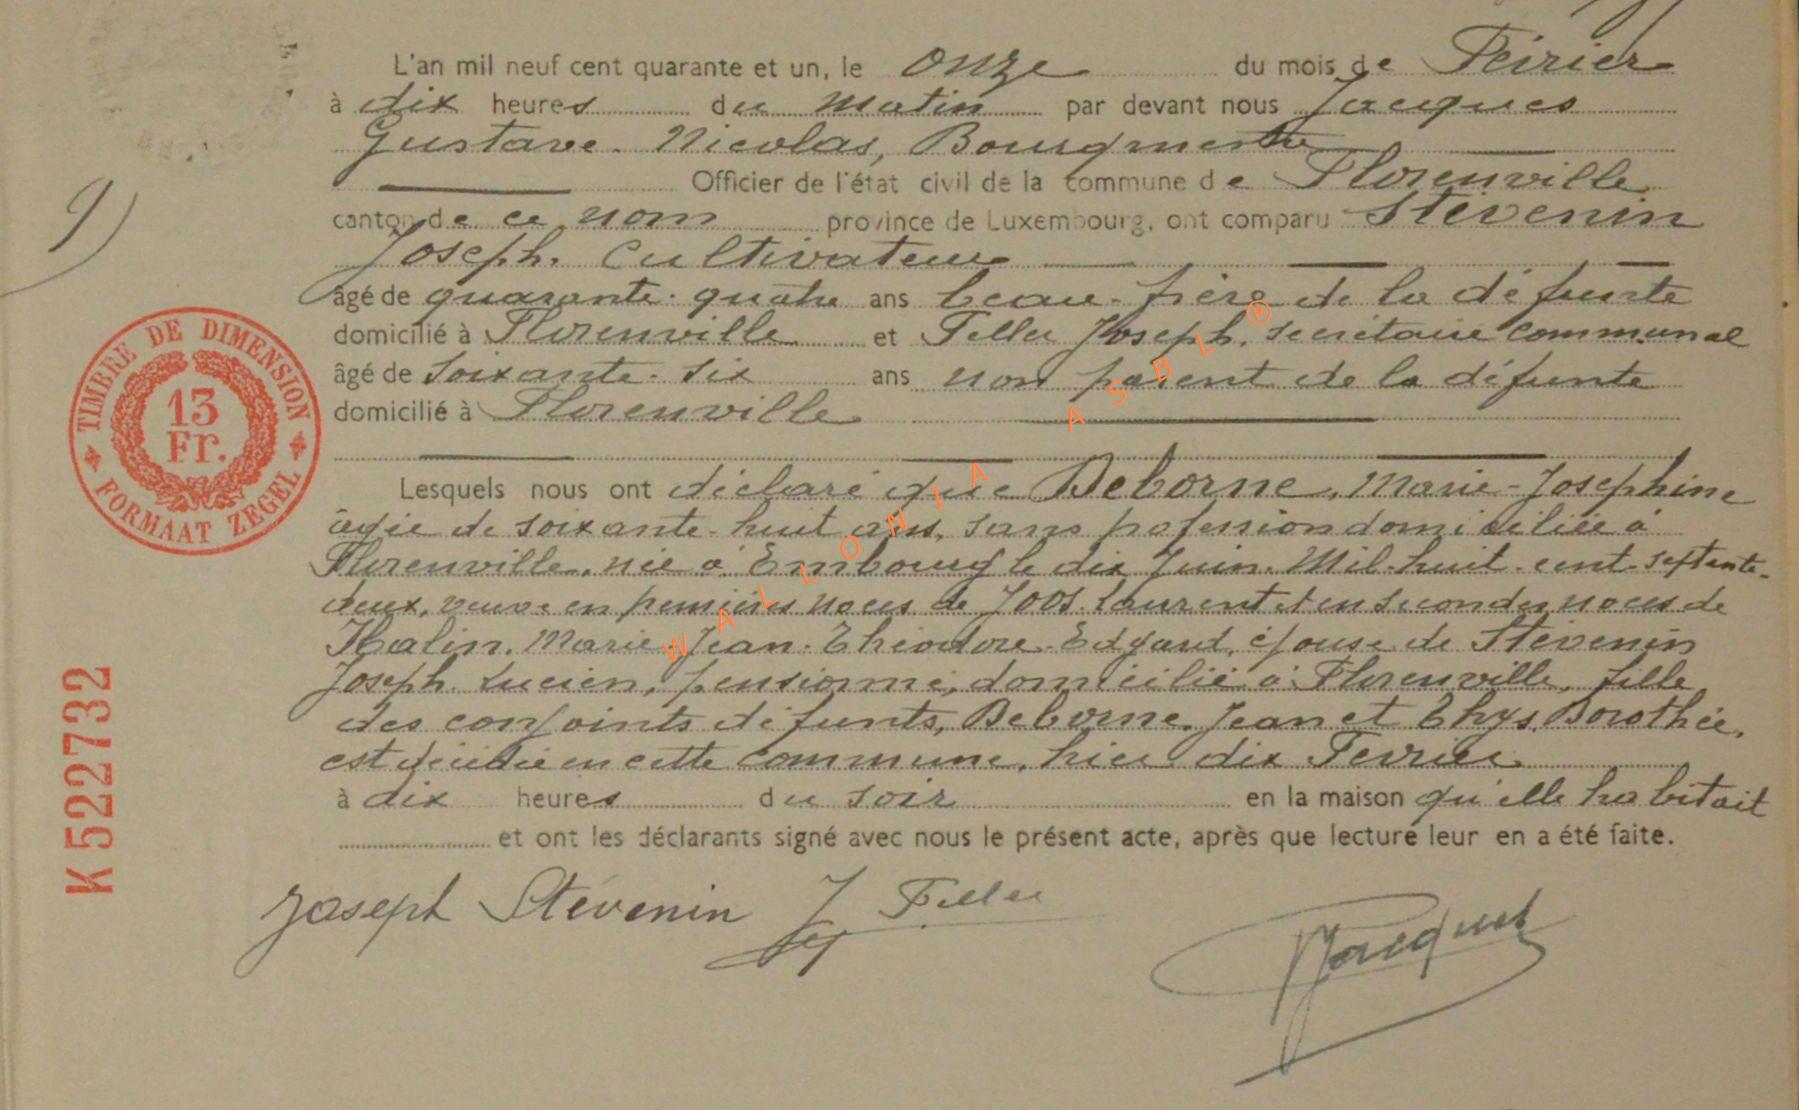 L'an mil neuf cent quarante et un, le onze du mois de Février
à dix heures du matin par devant nous Jacques
Gustave. Nicolas, Bourgmestre
Officier de l'état civil de la commune de Florenville
canton de ce nom province de Luxembourg, ont comparu Stévenin
Joseph. Cultivateur
âgé de quarante. quatre ans beau-frère de la défunte
domicilié à Florenville et Feller Joseph. Secrétaire communal
âgé de soixante. six ans non parent de la défunte
domicilié à Florenville
Lesquels nous ont déclaré que Deborne, Marie-Joséphine
âgée de soixante-huit ans, sans profession domiciliée à
Florenville, née à Embourg le dix Juin. Mil-huit-cent-septante-
deux, veuve en premières noces de Joos. Laurent et en secondes noces de
Halin. Marie-Jean-Théodore-Edgard, épouse de Stévenin
Joseph. Lucien, pensionné, domicilié à Florenville, fille
des conjoints défunts, Deborne. Jean et Thys. Dorothée,
est décédée en cette commune, hier dix Février
à dix heures du soir en la maison qu'elle habitait
et ont les déclarants signé avec nous le présent acte, après que lecture leur en a été faite.
Joseph Stévenin J Feller
Jacques
9)
TIMBRE DE DIMENSION
13
Fr.
FORMAAT ZEGEL
K522732
WALLONIA ASBL®